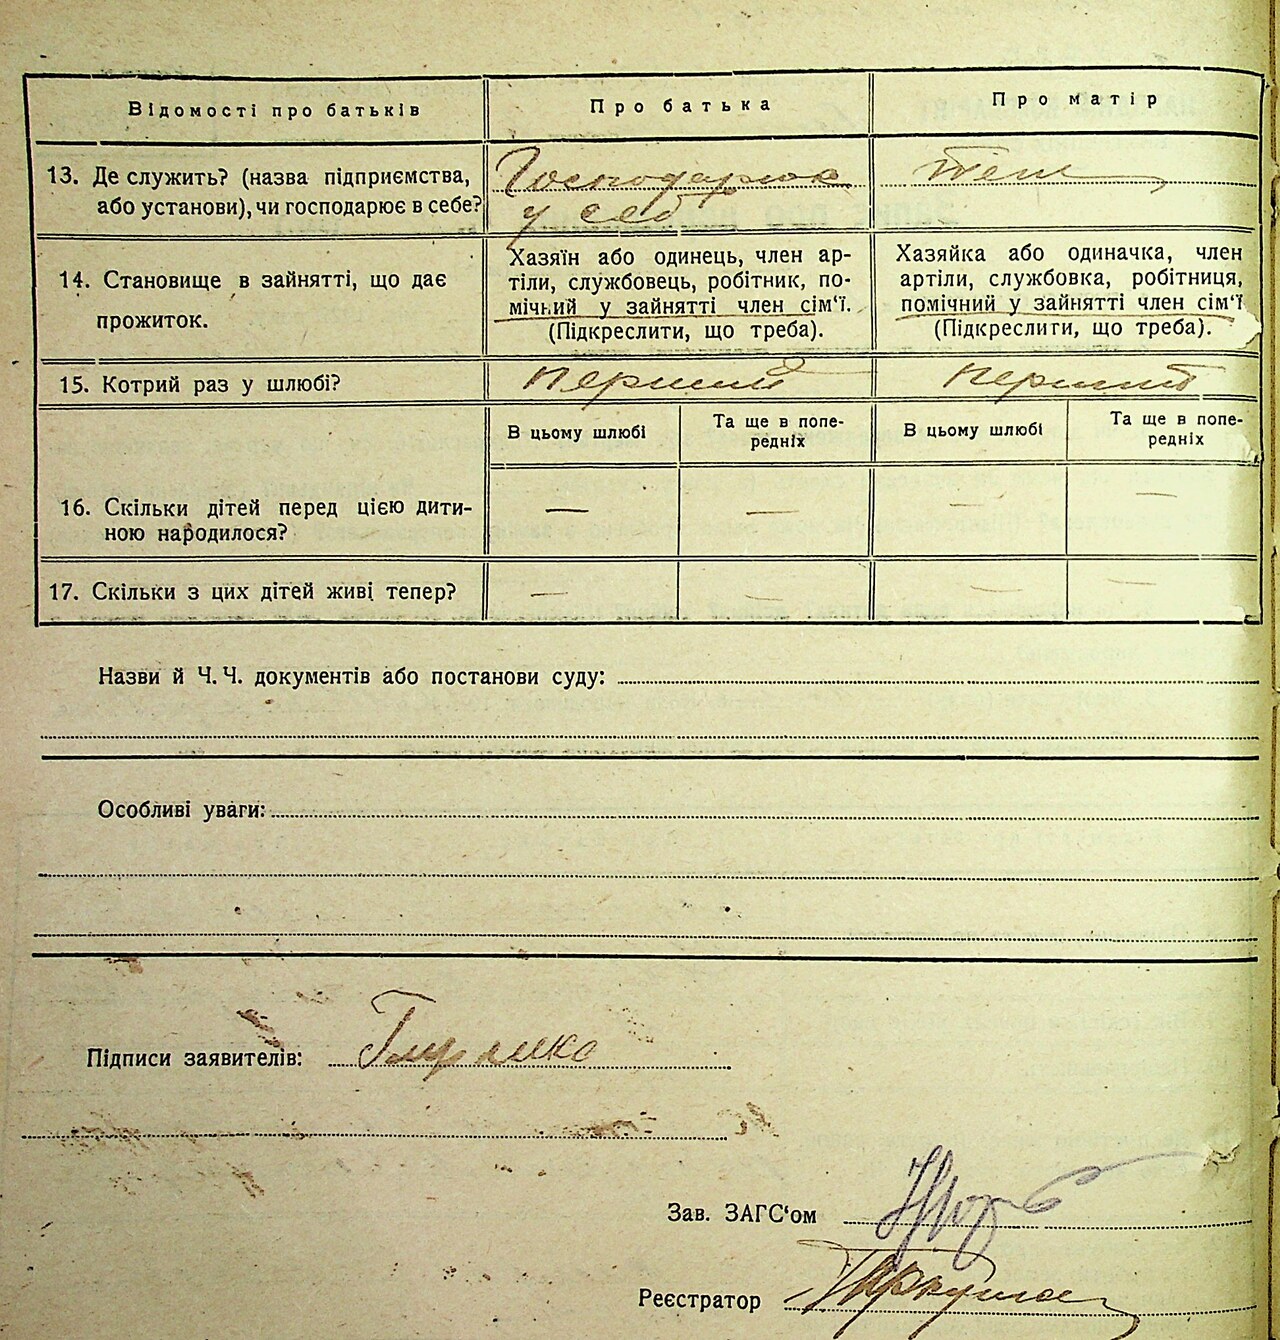 Відомості про батьків
Про батька
Про матір
13. Де служить? (назва підприємства,
або установи), чи господарює в себе?
Господарює
у себе
теж
14. Становище в зайнятті, що дає
прожиток.
Хазяїн або одинець, член ар-
тіли, службовець, робітник, по-
мічний у зайнятті член сім'ї.
(Підкреслити, що треба).
Хазяйка або одиначка, член
артіли, службовка, робітниця,
помічний у зайнятті член сім'ї
(Підкреслити, що треба).
15. Котрий раз у шлюбі?
перший
перший
В цьому шлюбі
Та ще в попе-
редніх
В цьому шлюбі
Та ще в попе-
редніх
16. Скільки дітей перед цією дити-
ною народилося?
— — — —
17. Скільки з цих дітей живі тепер?
— — — —
Назви й Ч. Ч. документів або постанови суду:
Особливі уваги:
Підписи заявителів:
Зав. ЗАГС'ом
Реєстратор